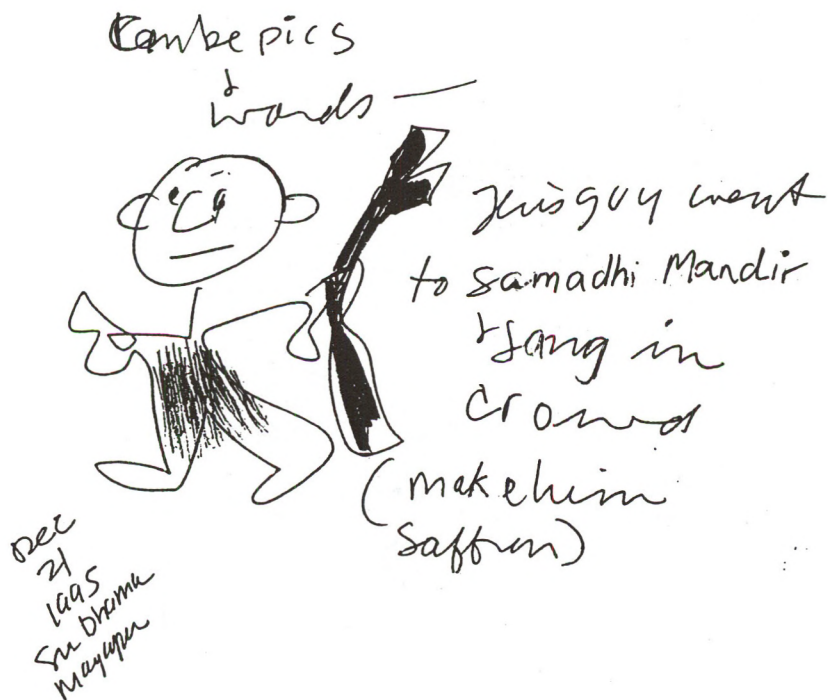 Can be pics
&
words —
This guy went
to Samadhi Mandir
& sang in
crowd
(make him
saffron)
Dec
21
1995
Sri Dhama
Mayapur